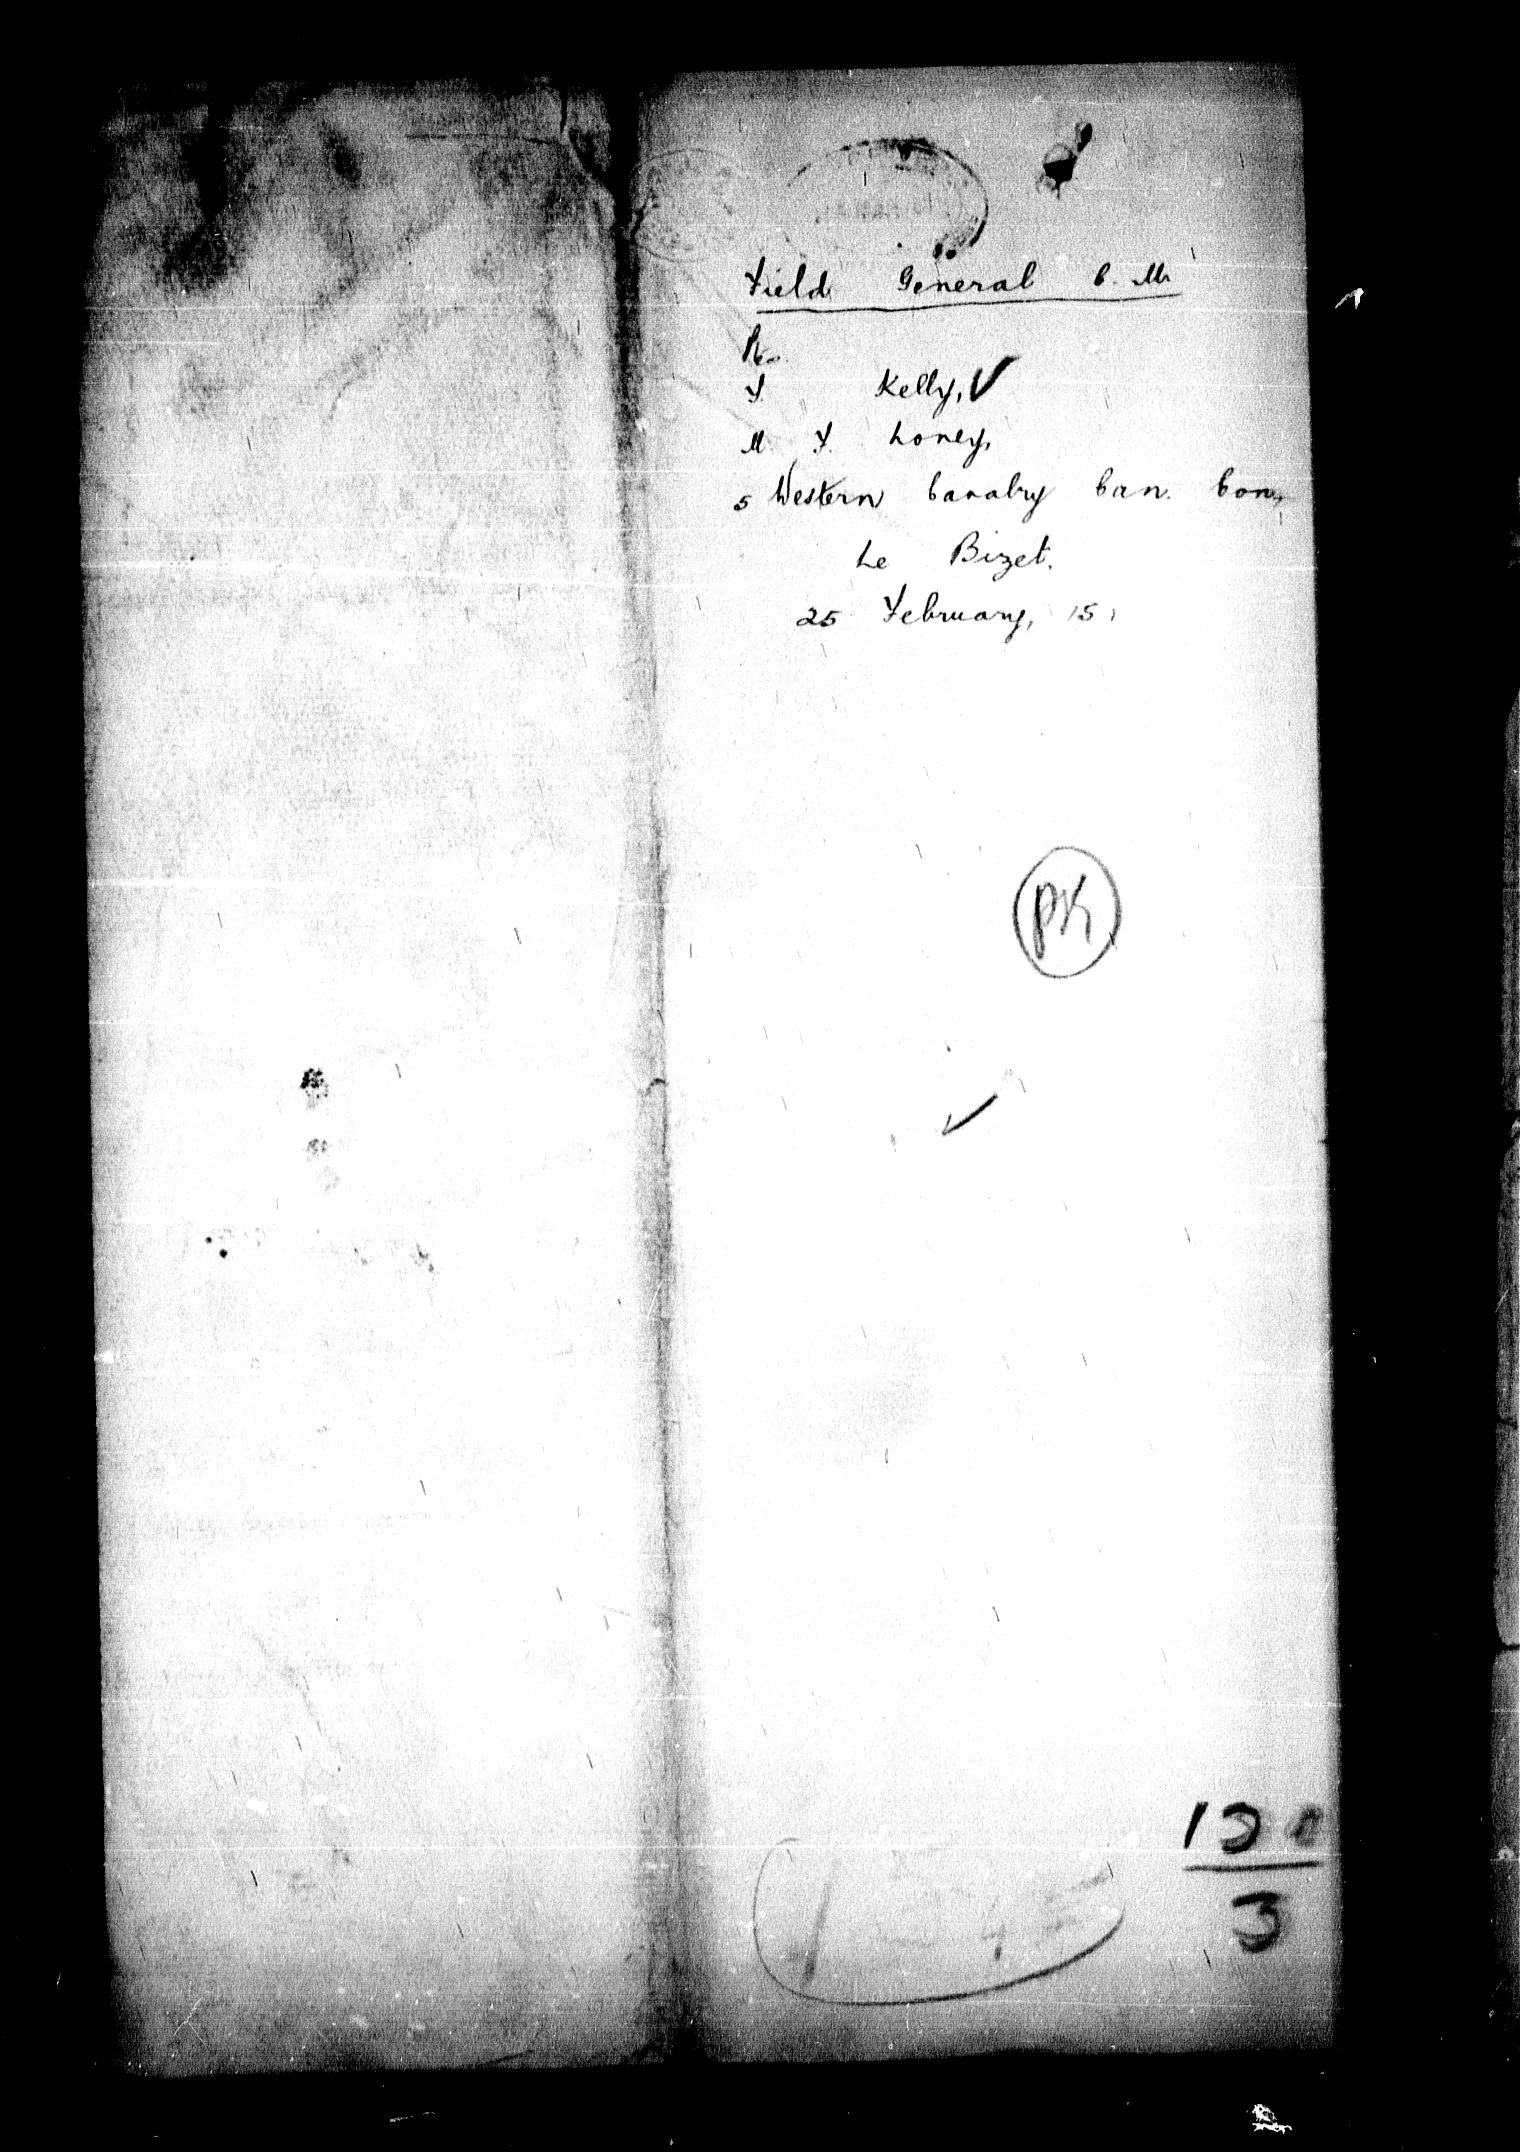 Field General C. M.
Re.
F. Kelly, ✓
M. F. Loney,
5 Western Cavalry Can. Con,
Le Bizet.
25 February, 15.
PK
✓
3